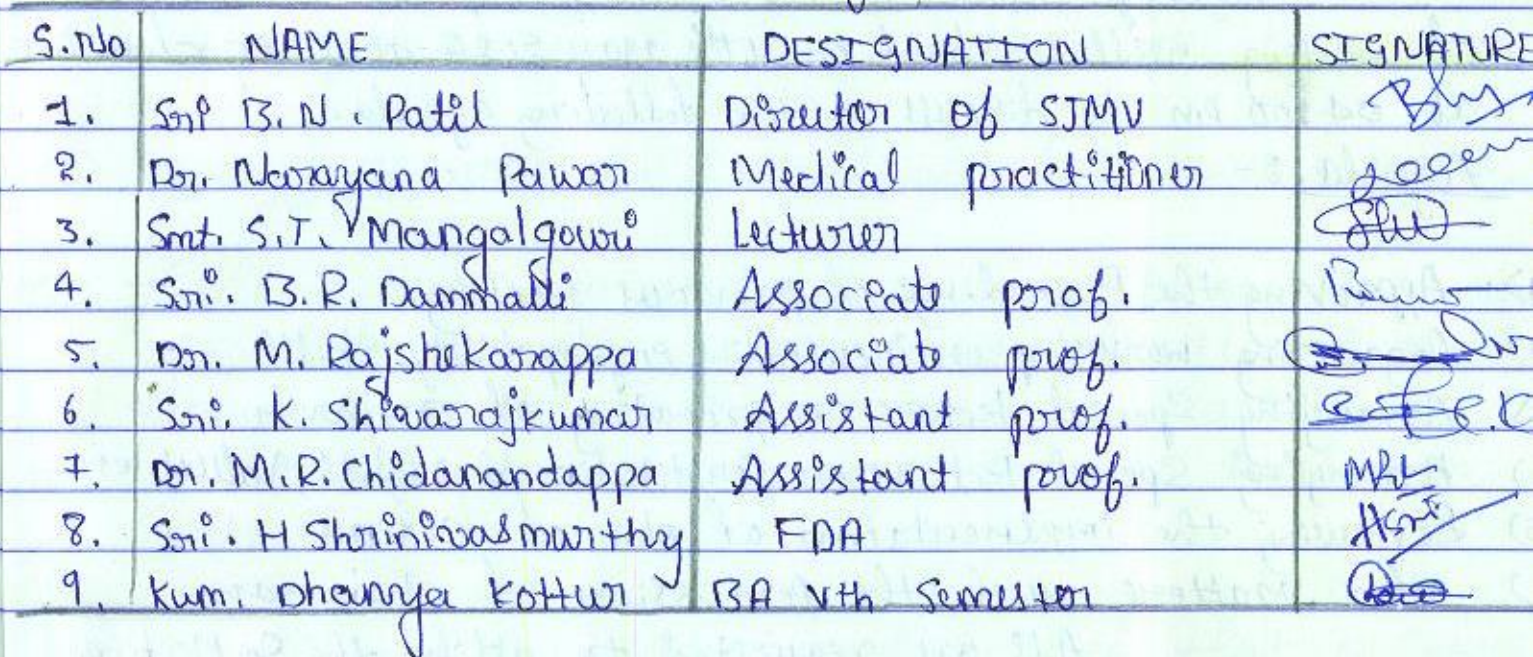 S.No NAME DESIGNATION SIGNATURE
1. Sri B. N. Patil Director of SJMV
2. Dr. Narayana Pawar Medical practitioner
3. Smt. S.T. Mangalgowri Lecturer
4. Sri. B.R. Dammalli Associate prof.
5. Dr. M. Rajshekarappa Associate prof.
6. Sri. K. Shivarajkumar Assistant prof.
7. Dr. M.R. Chidanandappa Assistant prof.
8. Sri. H Shrinivasmurthy FDA
9. Kum. Dhanya Kottur BA Vth Semester